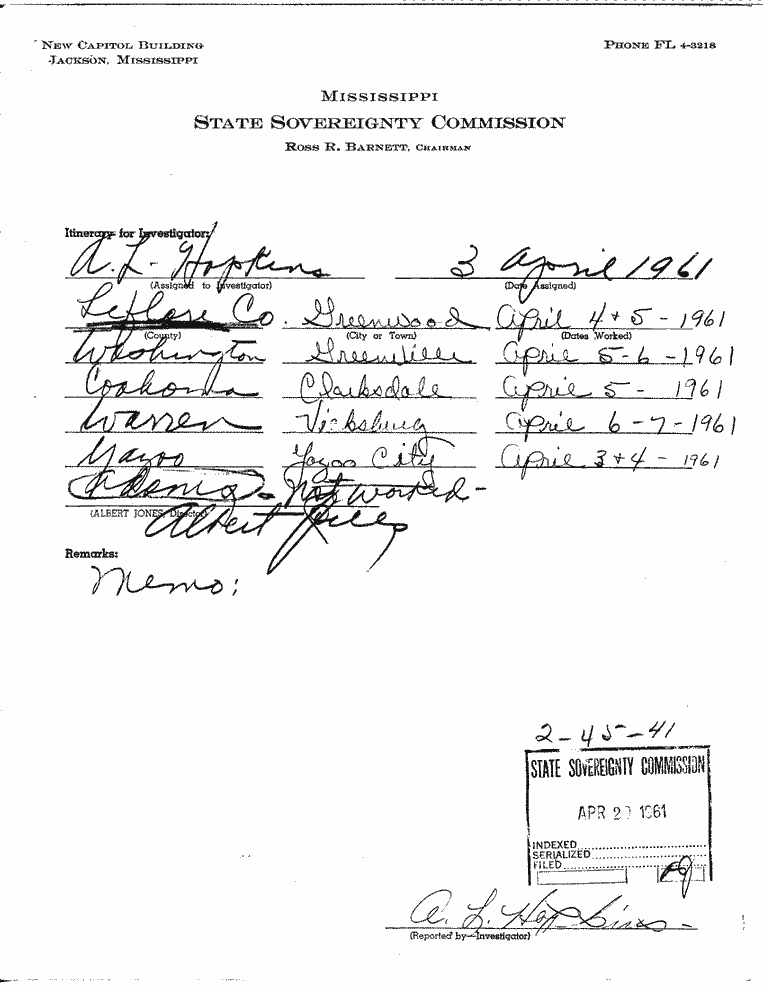 NEW CAPITOL BUILDING PHONE FL 4-3218
JACKSON, MISSISSIPPI
MISSISSIPPI
STATE SOVEREIGNTY COMMISSION
ROSS R. BARNETT, CHAIRMAN
Itinerary for Investigator:
A. L. Hopkins 3 April 1961
(Assigned to Investigator) (Date Assigned)
Leflore Co. Greenwood April 4 + 5 - 1961
(County) (City or Town) (Dates Worked)
Washington Greenville April 5-6-1961
Coahoma Clarksdale April 5 - 1961
Warren Vicksburg April 6-7-1961
Yazoo Yazoo City April 3 + 4 - 1961
Adams - Not worked -
(ALBERT JONES, Director)
Albert Jones
Remarks:
Memo:
2-45-41
STATE SOVEREIGNTY COMMISSION
APR 2 1961
INDEXED
SERIALIZED
FILED
A. L. Hopkins -
(Reported by Investigator)